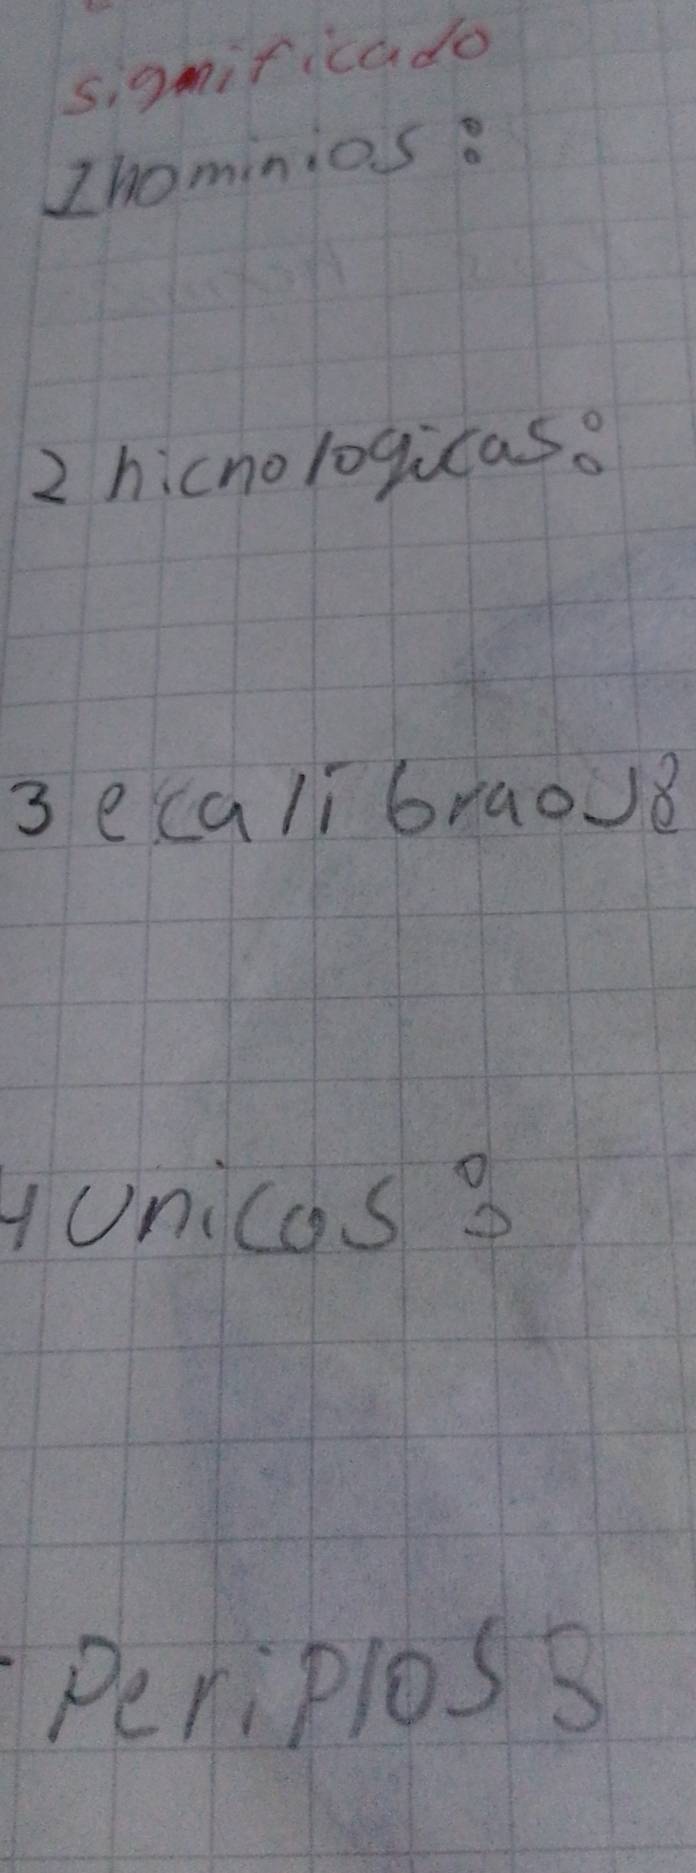 significado
1 hominios:
2 hicnologicas:
3 ecalibraos:
4 unicos:
- Periplos: